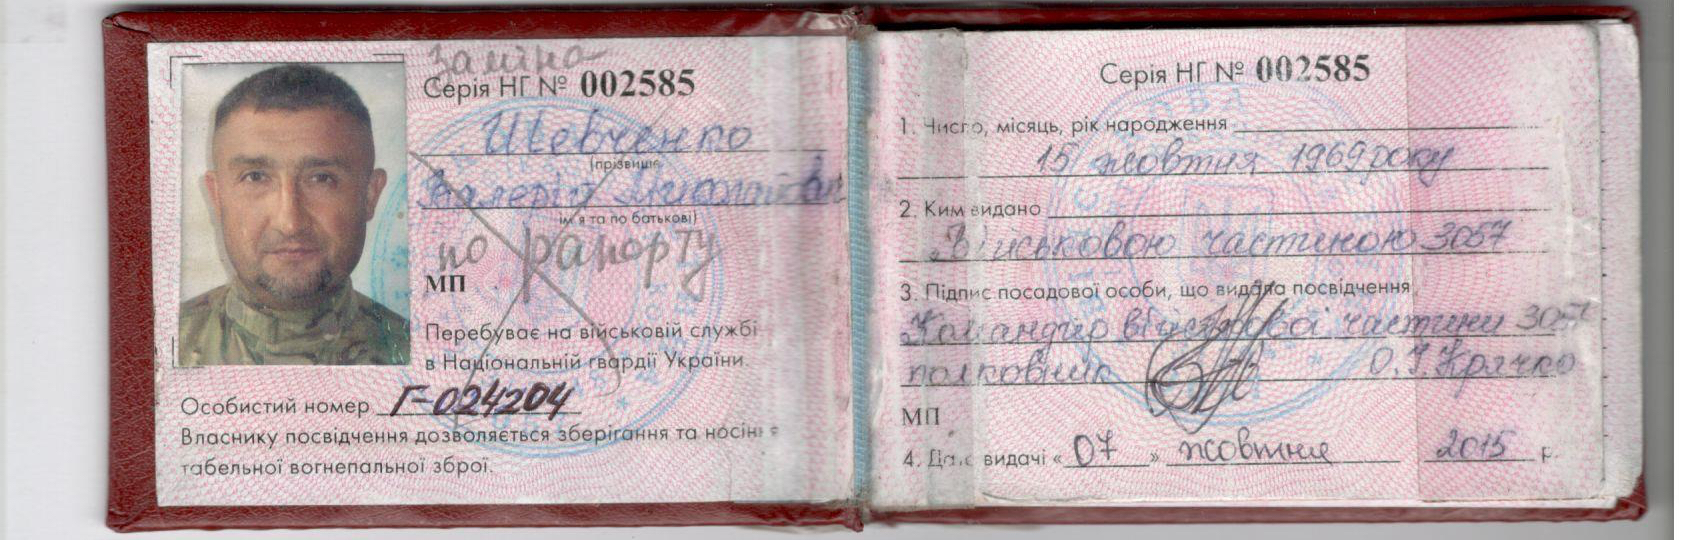 заміна
Серія НГ № 002585
Шевченко
(прізвище
Валерій
ім'я та по батькові)
по рапорту
МП
Перебуває на військовій службі
в Національній гвардії України.
Особистий номер Г-024204
Власнику посвідчення дозволяється зберігання та носіння
табельної вогнепальної зброї.
Серія НГ № 002585
1. Число, місяць, рік народження
15 жовтня 1969 року
2. Ким видано
Військовою частиною 3057
3. Підпис посадової особи, що видала посвідчення
Командир військової частини 3057
полковник О.І. Крячко
МП
4. Дата видачі « 07 » жовтня 2015 р.